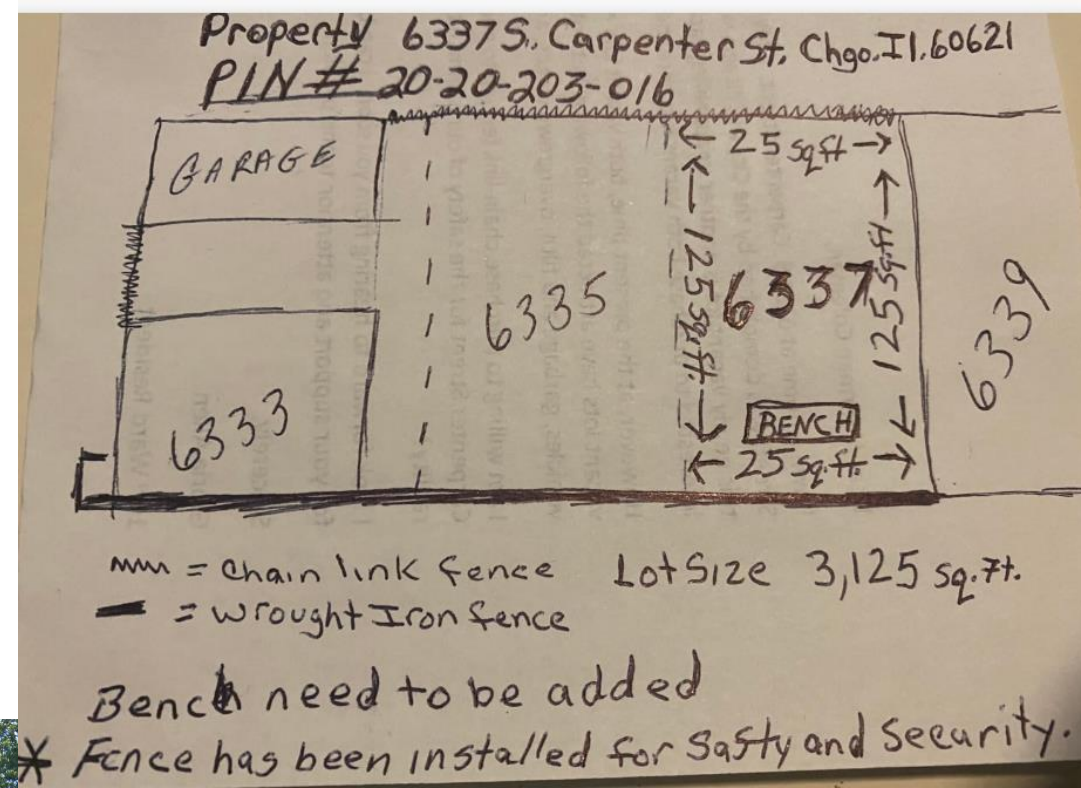 Property 6337 S. Carpenter St. Chgo. Il. 60621
PIN # 20-20-203-016
GARAGE
25 sq ft
125 sq. ft.
6337
125 sq. ft.
6335
6339
6333
BENCH
25 sq. ft.
= Chain link fence
Lot Size 3,125 sq. Ft.
= Wrought Iron fence
Bench need to be added
* Fence has been installed for Safty and Security.